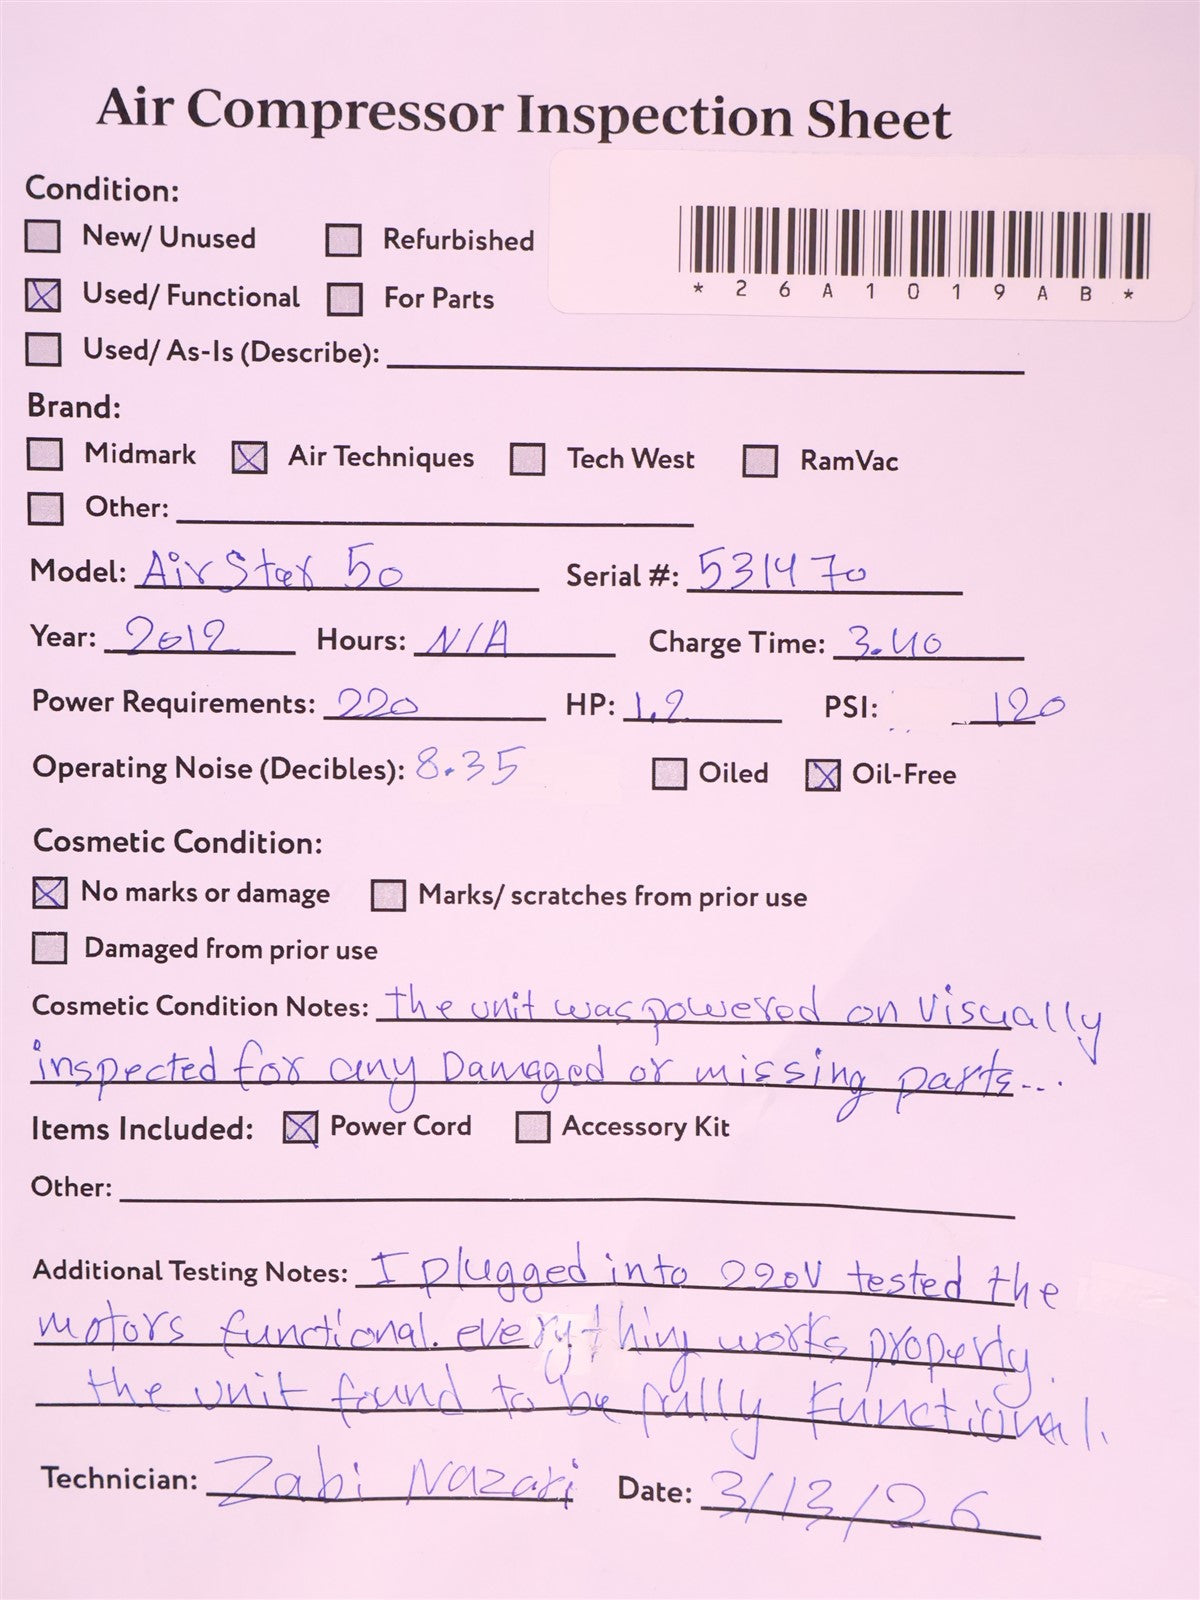 Air Compressor Inspection Sheet
Condition:
New/ Unused Refurbished
*26A1019AB*
Used/ Functional For Parts
Used/ As-Is (Describe):
Brand:
Midmark Air Techniques Tech West RamVac
Other:
Model: Air Star 50 Serial #: 531470
Year: 2012 Hours: N/A Charge Time: 3.40
Power Requirements: 220 HP: 1.2 PSI: 120
Operating Noise (Decibles): 8.35 Oiled Oil-Free
Cosmetic Condition:
No marks or damage Marks/ scratches from prior use
Damaged from prior use
Cosmetic Condition Notes: the unit was powered on visually
inspected for any Damaged or missing parts...
Items Included: Power Cord Accessory Kit
Other:
Additional Testing Notes: I plugged into 220V tested the
motors functional. everything works properly.
the unit found to be fully Functional.
Technician: Zabi Nazari Date: 3/13/26